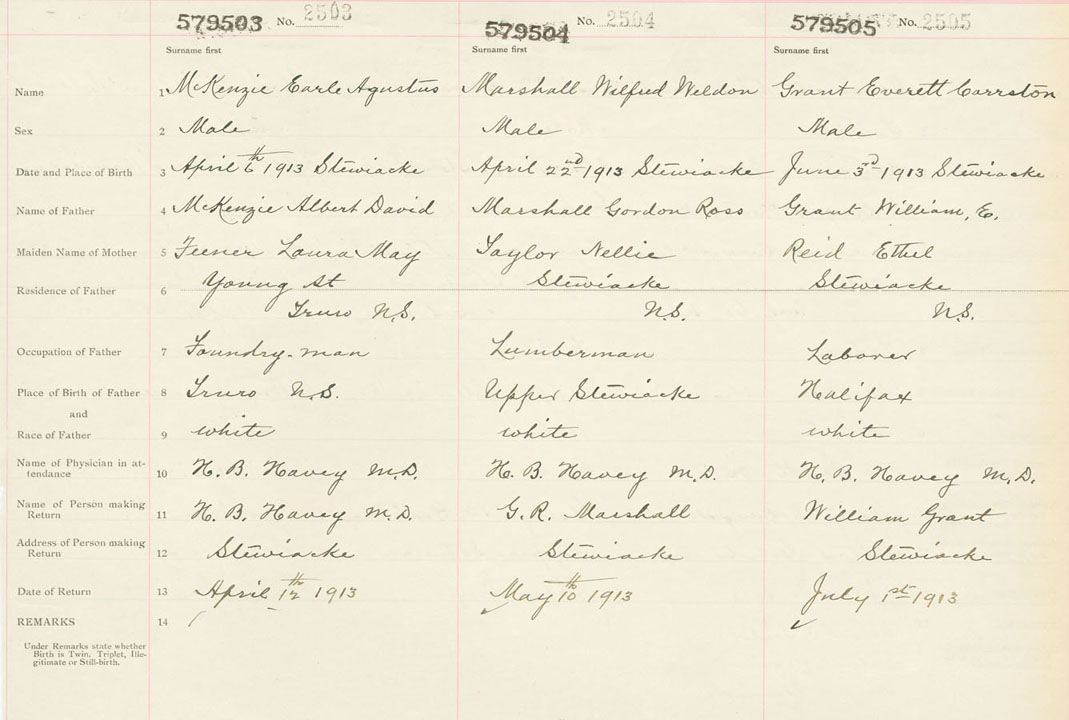 579503 No. 2503 579504 No. 2504 579505 No. 2505
Surname first Surname first Surname first
Name 1 McKenzie Earle Agustus Marshall Wilfred Weldon Grant Everett Carrston
Sex 2 Male Male Male
Date and Place of Birth 3 April 6th 1913 Stewiacke April 22nd 1913 Stewiacke June 3rd 1913 Stewiacke
Name of Father 4 McKenzie Albert David Marshall Gordon Ross Grant William, E.
Maiden Name of Mother 5 Feener Laura May Taylor Nellie Reid Ethel
Residence of Father 6 Young St Stewiacke Stewiacke
Truro N.S. N.S. N.S.
Occupation of Father 7 Foundry-man Lumberman Laborer
Place of Birth of Father 8 Truro N.S. Upper Stewiacke Halifax
and
Race of Father 9 white white white
Name of Physician in at-
tendance 10 H. B. Havey M.D. H. B. Havey M.D. H. B. Havey M.D.
Name of Person making
Return 11 H. B. Havey M.D. G. R. Marshall William Grant
Address of Person making
Return 12 Stewiacke Stewiacke Stewiacke
Date of Return 13 April 12th 1913 May 10th 1913 July 1st 1913
REMARKS 14
Under Remarks state whether
Birth is Twin, Triplet, Ille-
gitimate or Still-birth.